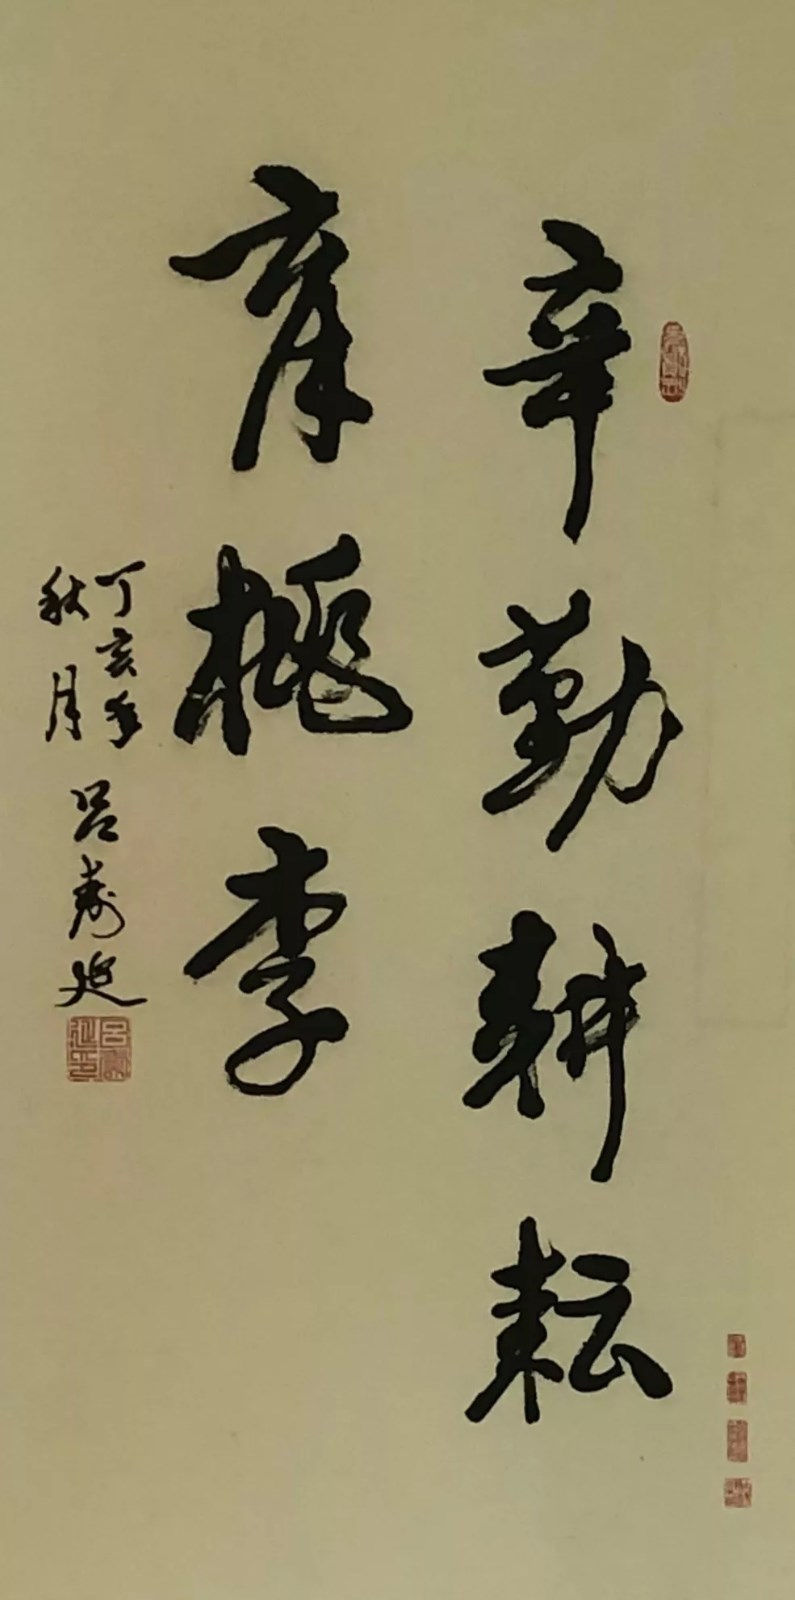 辛勤耕耘
育桃李
丁亥年
秋月
吕寿延